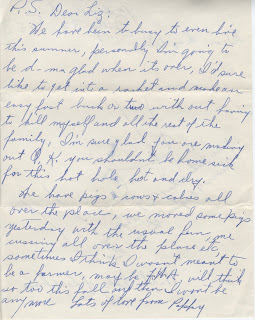 P.S. Dear Liz:
We have been to busy to even live
this summer, personally I'm going to
be d-m glad when its over, I'd sure
like to get into a racket and make an
easy fast buck or two with out having
to kill myself and all the rest of the
family, I'm sure glad you are making
out O.K. you shouldn't be home sick
for this hot hole, hot and dry.
We have pigs & sows & calves all
over the place, we moved some pigs
yesterday with the usual fun, me
cussing all over the place etc
sometimes I think I wasn't meant to
be a farmer, maybe FHA will think
so too this fall and then I won't be
any more Lots of love from Pappy